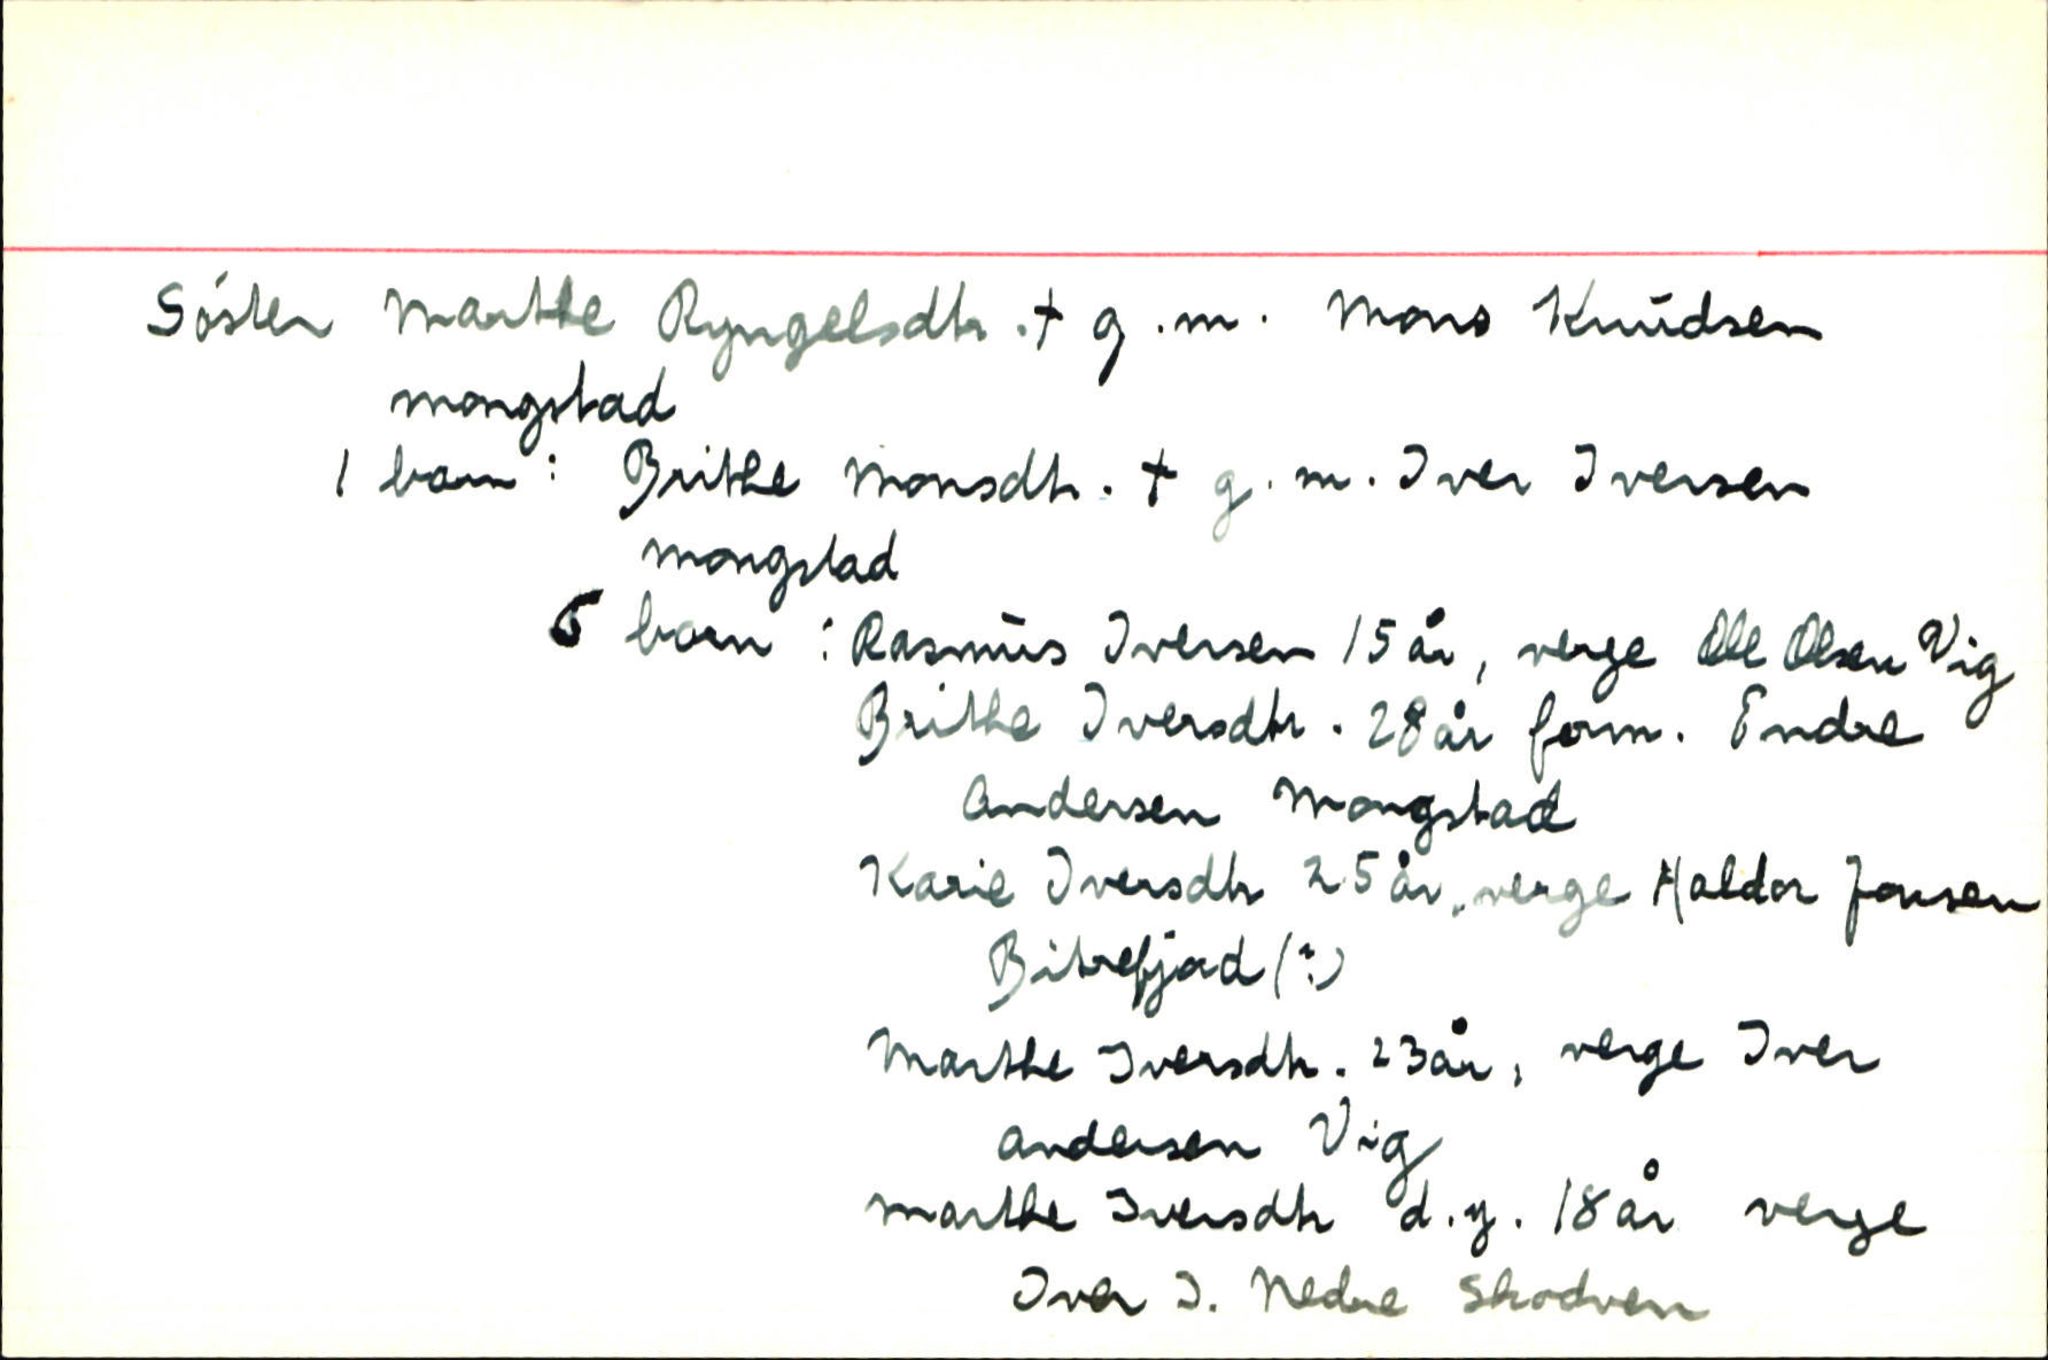 Söster Marthe Ryngelsdtr. + g.m. Mons Knudsen
Mongstad
1 barn: Brithe Monsdtr. + g.m. Iver Iversen
Mongstad
5 barn: Rasmus Iversen 15 år, verge Ole Olsen Vig
Brithe Iversdtr. 28 år form. Endre
Andersen Mongstad
Karie Iversdtr 25 år, verge Haldor Jonsen
Bitrefjord (?)
Marthe Iversdtr. 23 år, verge Iver
Andersen Vig
Marthe Iversdtr d.y. 18 år verge
Iver I. Nedre Skodven